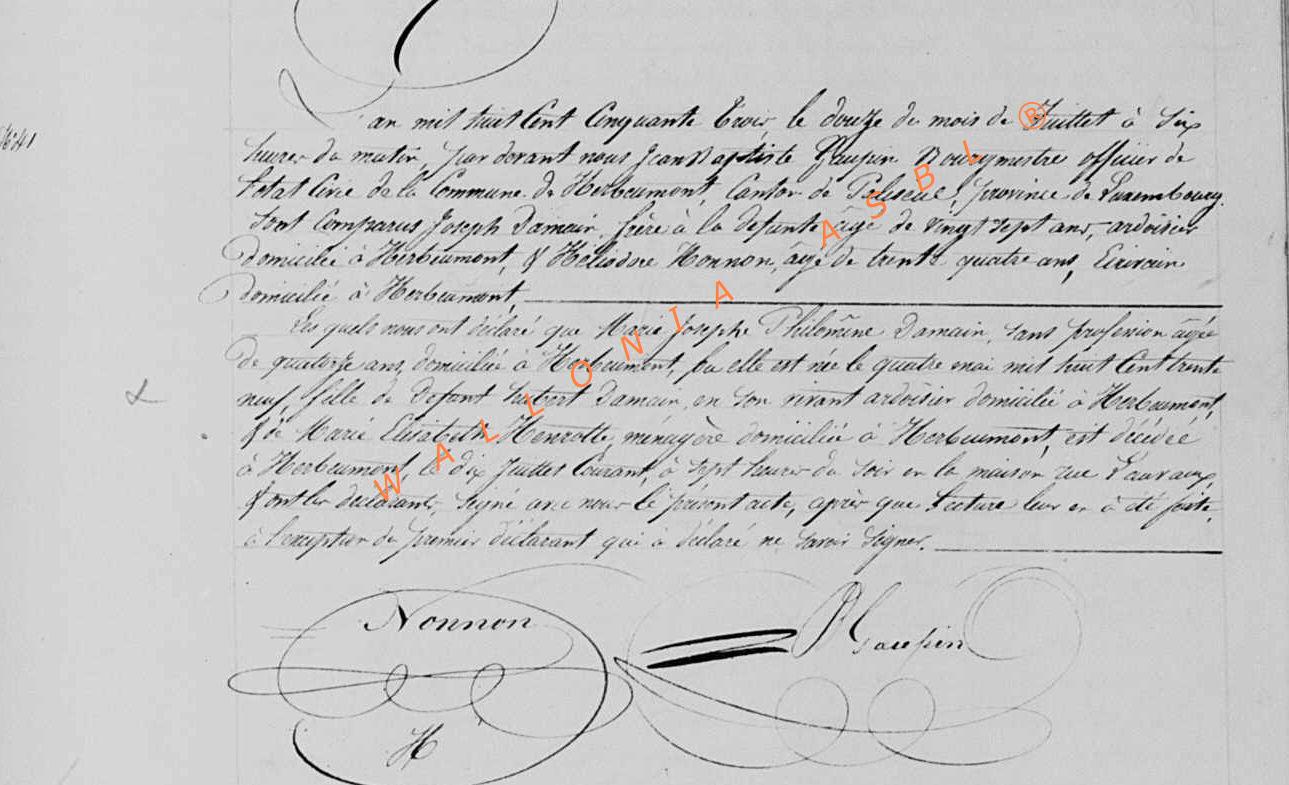 L'an mil huit Cent Cinquante Trois, le douze du mois de Juillet à Six
heures du matin, par devant nous Jean Baptiste Gaupin Bourgmestre officier de
l'etat Civil de la Commune de Herbeumont, Canton de Paliseul, province de Luxembourg.
Sont Comparus Joseph Damain, frère à la defunte âgé de vingt sept ans, ardoisier
Domicilié à Herbeumont, & Héliodore Nonnon, âgé de trente quatre ans, Ecrivain
Domicilié à Herbeumont
Les quels nous ont déclaré que Marie Josephe Philomène Damain, sans profession âgée
de quatorze ans, domiciliée à Herbeumont, où elle est née le quatre mai mil huit Cent trente
neuf, fille de Defunt hubert Damain, en Son vivant ardoisier domicilié à Herbeumont,
& de Marie Elisabeth Henrotte, ménagère domiciliée à Herbeumont, est décédée
à Herbeumont, le dix Juillet Courant, à Sept heures du Soir en la maison rue
& ont les déclarants Signé avec nous le présent acte, après que lecture leur en à été faite,
à l'exception du premier déclarant qui à déclaré ne Savoir Signer.
Nonnon
Gaupin
H
WALLONIA ASBL ®